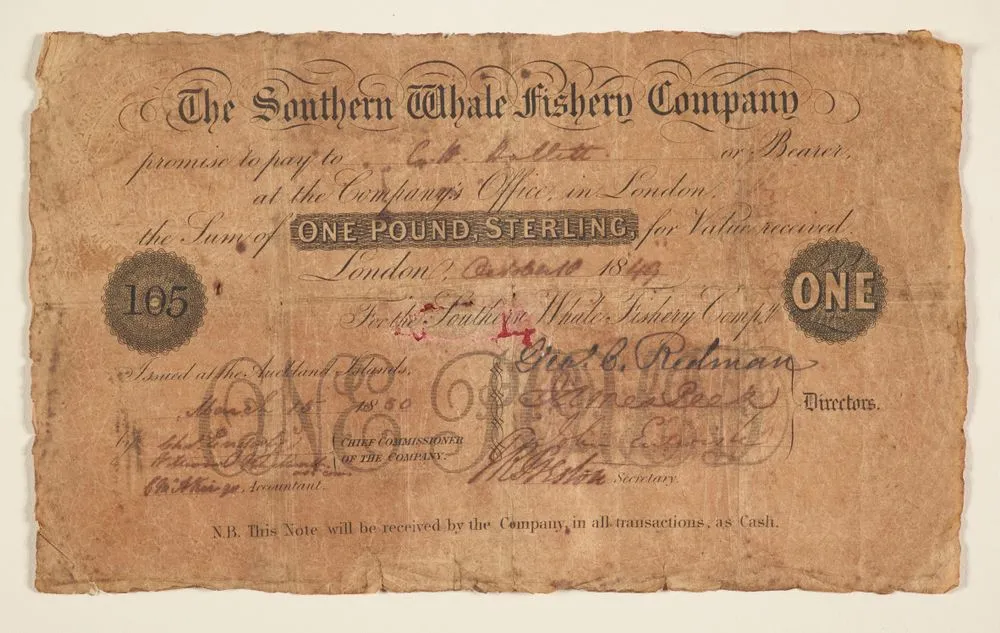 The Southern Whale Fishery Company
promise to pay to C. H. Hallett or Bearer,
at the Company's Office, in London,
the Sum of ONE POUND, STERLING, for Value received.
London, October 18 1849
105
ONE
For the Southern Whale Fishery Compy.
Issued at the Auckland Islands,
March 15 1850
Geo. C. Redman
John
Directors.
CHIEF COMMISSIONER
OF THE COMPANY.
Preston Secretary.
Accountant.
ONE POUND
N.B. This Note will be received by the Company, in all transactions, as Cash.